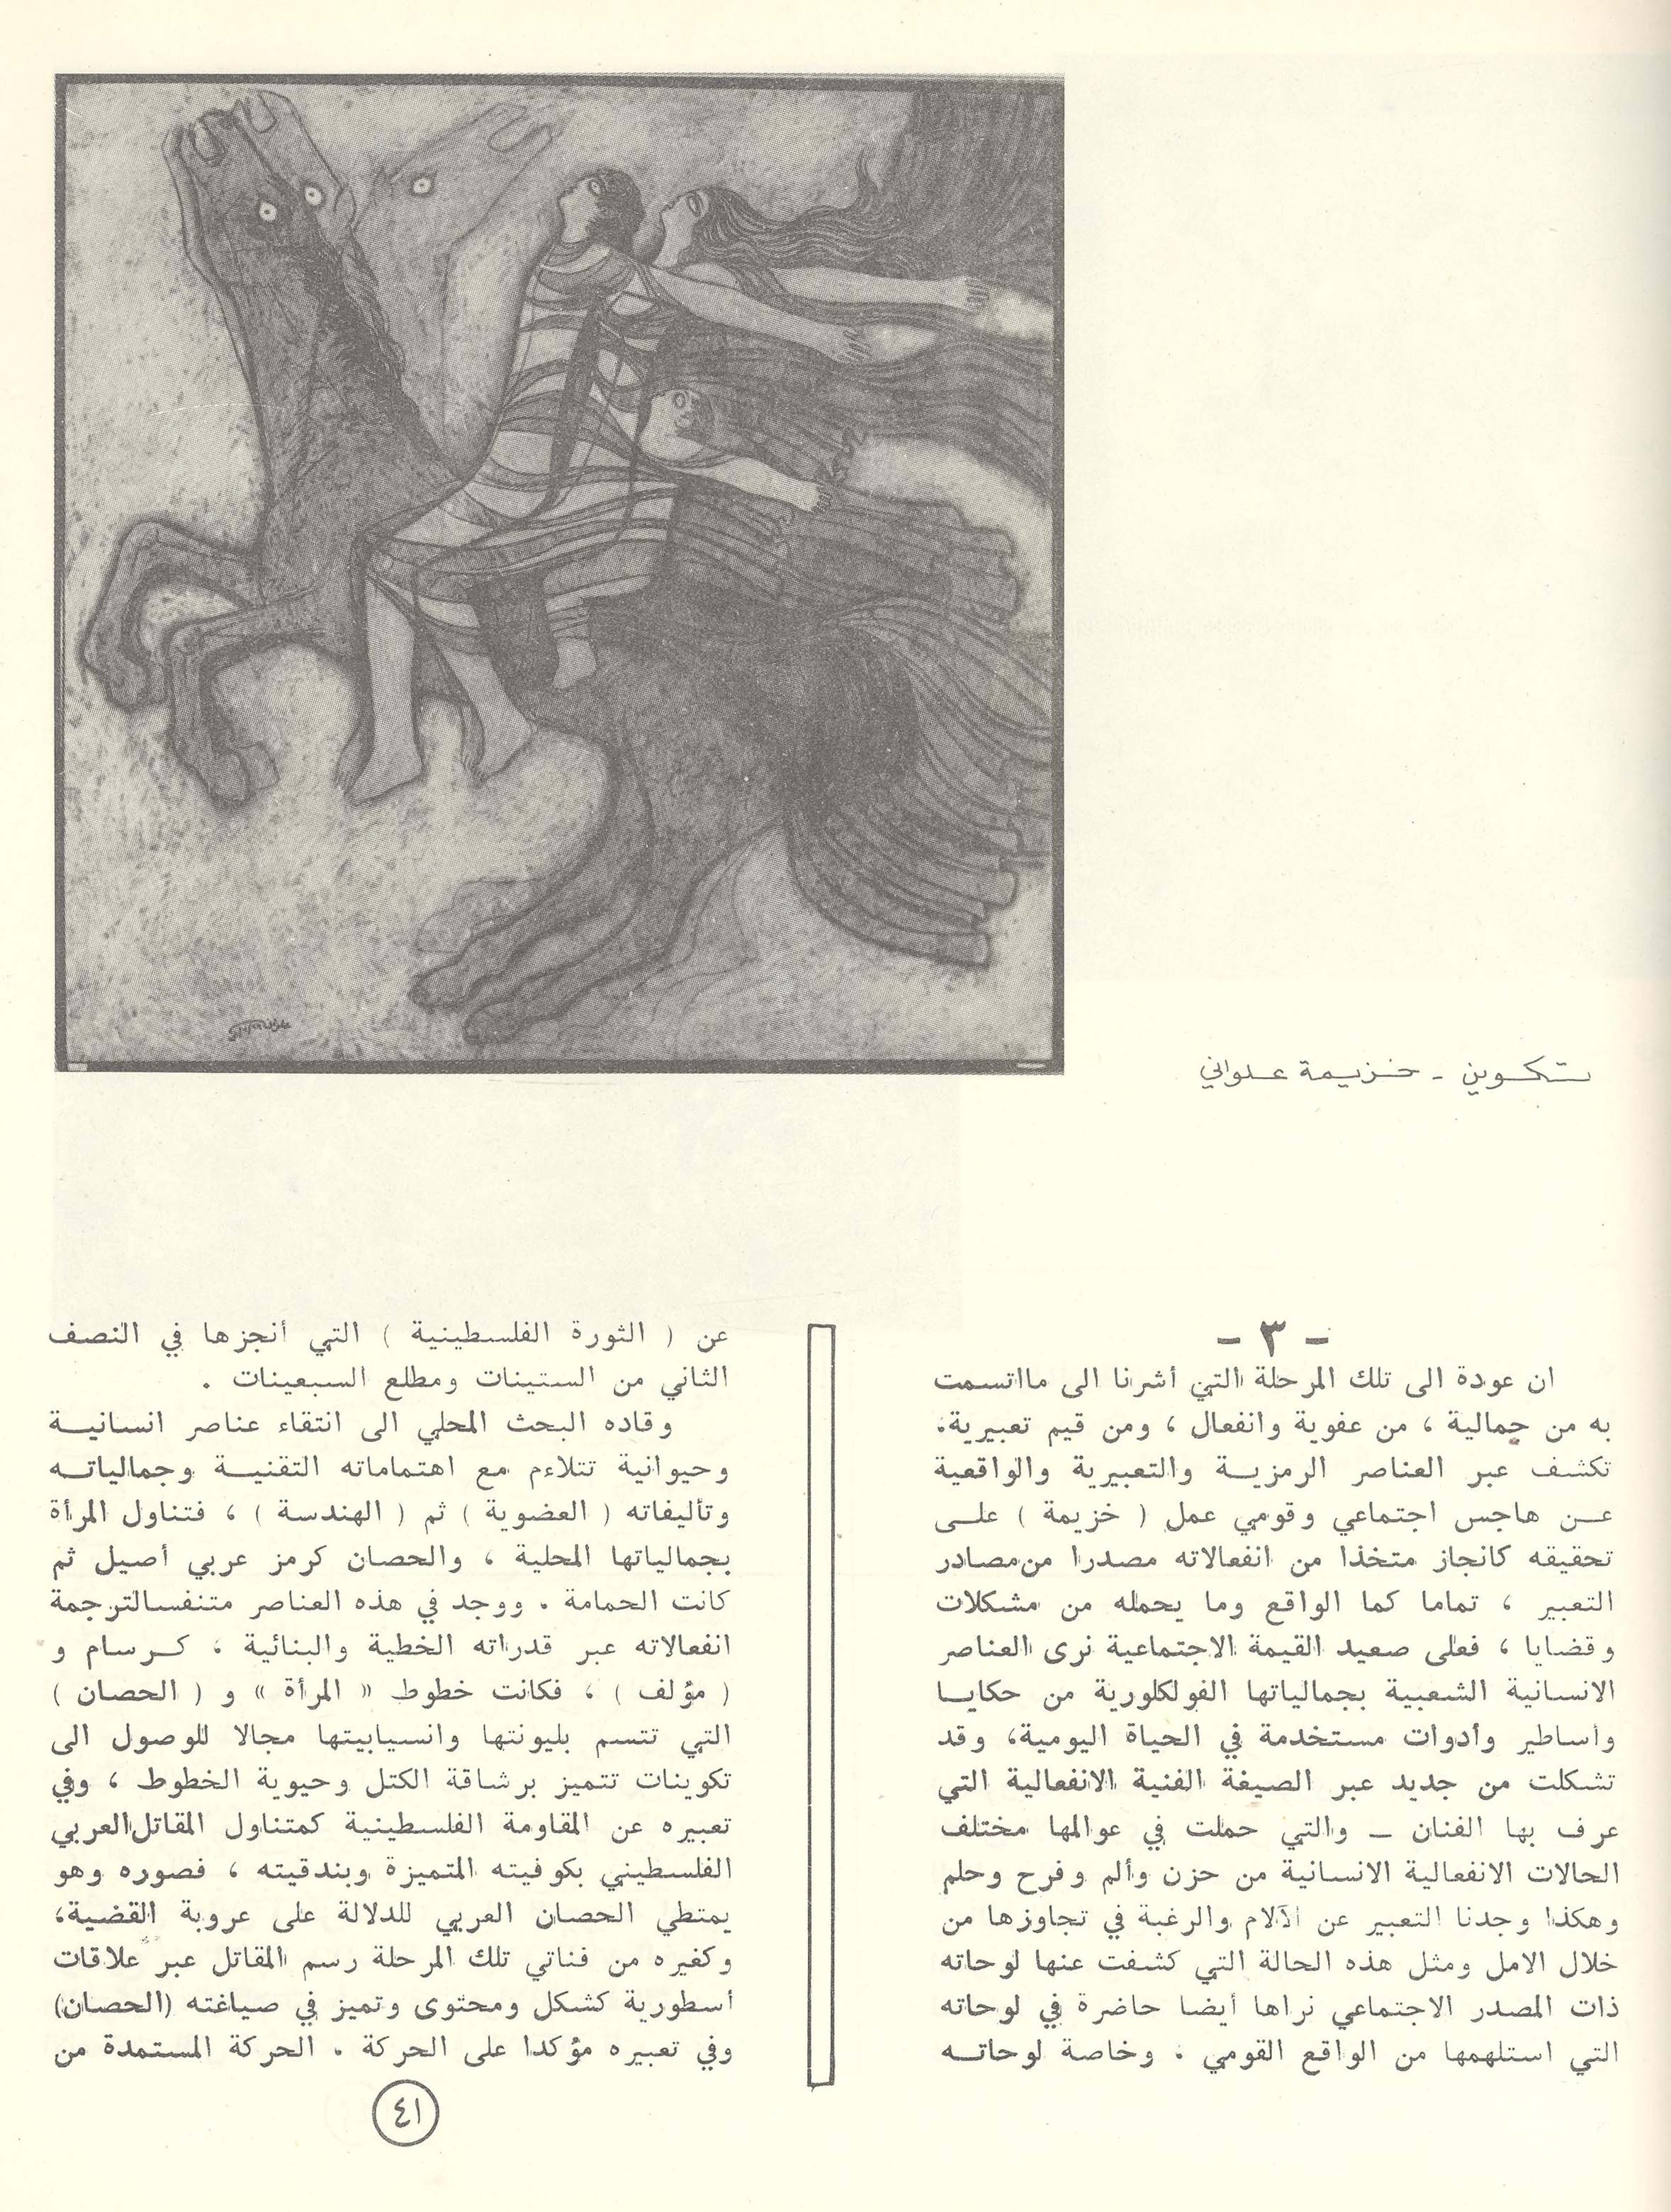 تكوين - خزيمة علواني
- ٣ -
ان عودة الى تلك المرحلة التي أشرنا الى مااتسمت
به من جمالية ، من عفوية وانفعال ، ومن قيم تعبيرية،
تكشف عبر العناصر الرمزيـة والتعبيرية والواقعية
عـن هاجس اجتماعي وقومي عمل ( خزيمة ) علـى
تحقيقه كانجاز متخذا من انفعالاته مصدرا من مصادر
التعبير ، تماما كما الواقع وما يحمله من مشكلات
وقضايا ، فعلى صعيد القيمة الاجتماعية نرى العناصر
الانسانية الشعبية بجمالياتها الفولكلورية من حكايـا
وأساطير وأدوات مستخدمة في الحياة اليومية، وقد
تشكلت من جديد عبر الصيغة الفنية الانفعالية التي
عرف بها الفنان ــ والتي حملت في عوالمها مختلف
الحالات الانفعالية الانسانية من حزن وألم وفرح وحلم
وهكذا وجدنا التعبير عن الآلام والرغبة في تجاوزها من
خلال الامل ومثل هذه الحالة التي كشفت عنها لوحاته
ذات المصدر الاجتماعي نراها أيضا حاضرة في لوحاته
التي استلهمها من الواقع القومي . وخاصة لوحاتـه
عن ( الثورة الفلسطينية ) التي أنجزها في النصف
الثاني من الستينات ومطلع السبعينات .
وقاده البحث المحلي الى انتقاء عناصر انسانيـة
وحيوانية تتلاءم مع اهتماماته التقنيـة وجمالياتـه
وتأليفاته ( العضوية ) ثم ( الهندسة ) ، فتناول المرأة
بجمالياتها المحلية ، والحصان كرمز عربي أصيل ثم
كانت الحمامة . ووجد في هذه العناصر متنفسالترجمة
انفعالاته عبر قدراته الخطية والبنائية ، كـرسام و
( مؤلف ) ، فكانت خطوط « المرأة » و ( الحصان )
التي تتسم بليونتها وانسيابيتها مجالا للوصول الى
تكوينات تتميز برشاقة الكتل وحيوية الخطوط ، وفي
تعبيره عن المقاومة الفلسطينية كمتناول المقاتل العربي
الفلسطيني بكوفيته المتميزة وبندقيته ، فصوره وهو
يمتطي الحصان العربي للدلالة على عروبة القضية،
وكغيره من فناني تلك المرحلة رسم المقاتل عبر علاقات
أسطورية كشكل ومحتوى وتميز في صياغته (الحصان)
وفي تعبيره مؤكدا على الحركة . الحركة المستمدة من
٤١